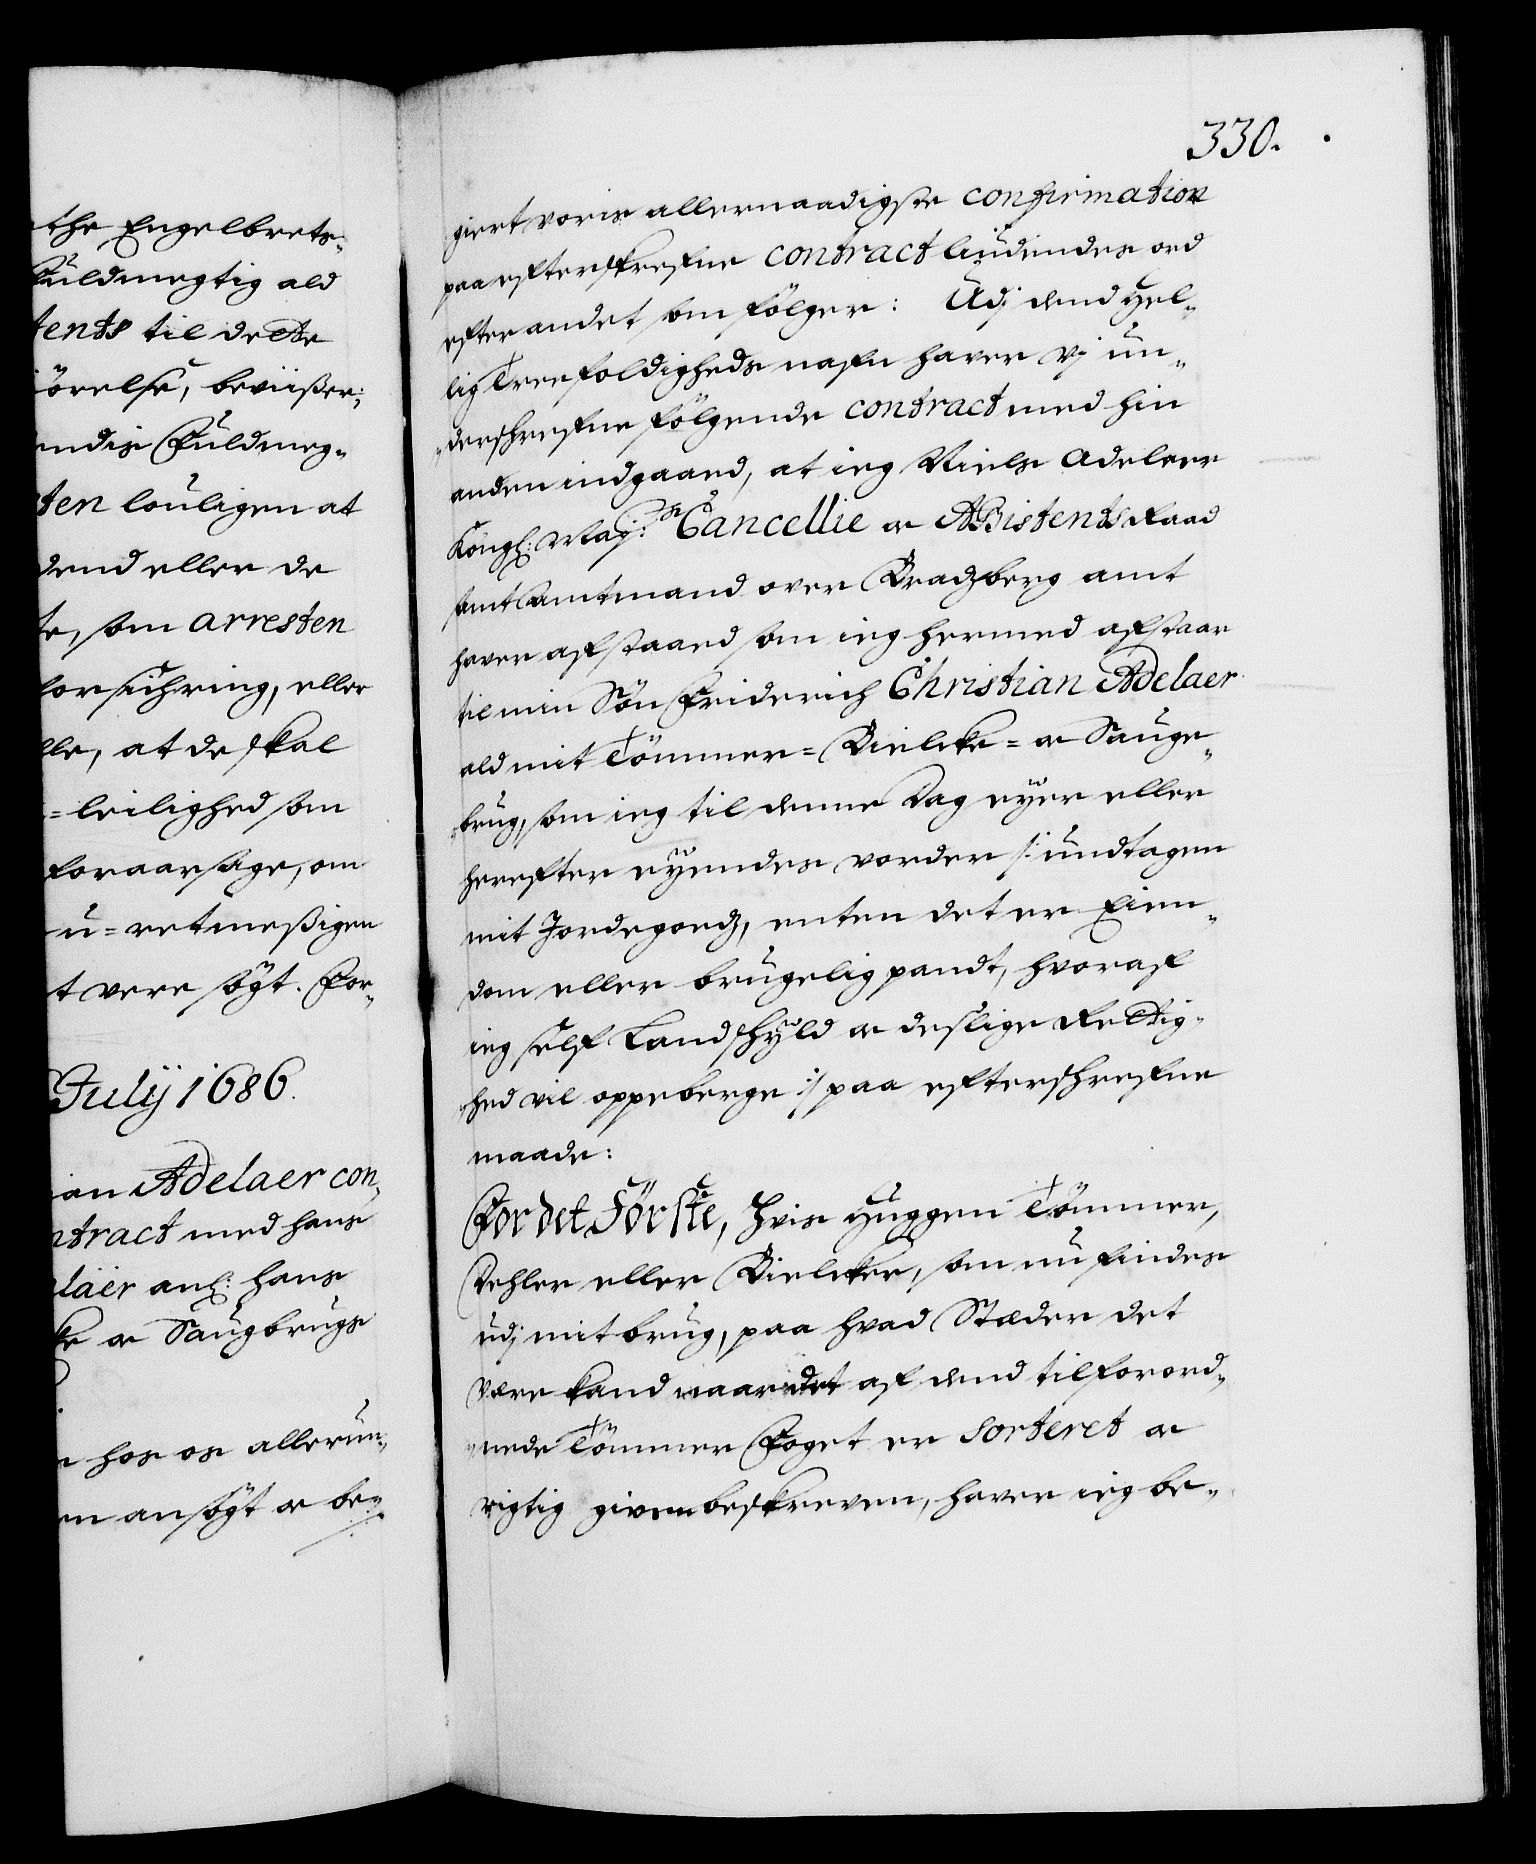 the Engelbrets-
Fuldmegtig ald
tents til dette
örelse, beviißer-
endis Fuldmeg-
ten louligen at
dend eller de
te, som arresten
forsichring, eller
lle, at de skal
=leilighed som
foraarsage, om
u=retmeßigen
t vere sögt. For-
July 1686.
ian Adelaer con-
ntract med hans
laer anl: hans
ke og Saugbrugs
hos os allerun-
en ansögt og be-
330.
giert voris allernaadigste confirmation
paa efterskrefne contract liudendes ord
efter andet som fölger: Udj dend hel-
lig Treefoldigheds nafn haver vj un-
derschrefne fölgende contract med hin
anden indgaaed, at ieg Niels Adelaer
Kongl: May:ts Cancellie og Aßistents Raad
samt Amtmand over Bradsberg amt
haver afstaaed som ieg hermed afstaar
til min Sön Friderich Christian Adelaer
ald mit Tömmer= Bielcke= og Sauge-
brug, som ieg til denne Dag eyer eller
herefter eyendes vorder /: undtagen
mit Jordegoeds, enten det er Eien-
dom eller brugelig pandt, hvoraf
ieg self Landschyld og deslige Rettig-
hed vil oppeberge :/ paa efterschrefne
maade:
For det Förste, hvis huggen Tömmer,
Dehler eller Bielcker, som nu findes
udj mit brug, paa hvad Stæder det
være kand naar det af dend tilforord-
nede Tömmer Foget er sorteret og
rigtig given beskreven, haver ieg be-